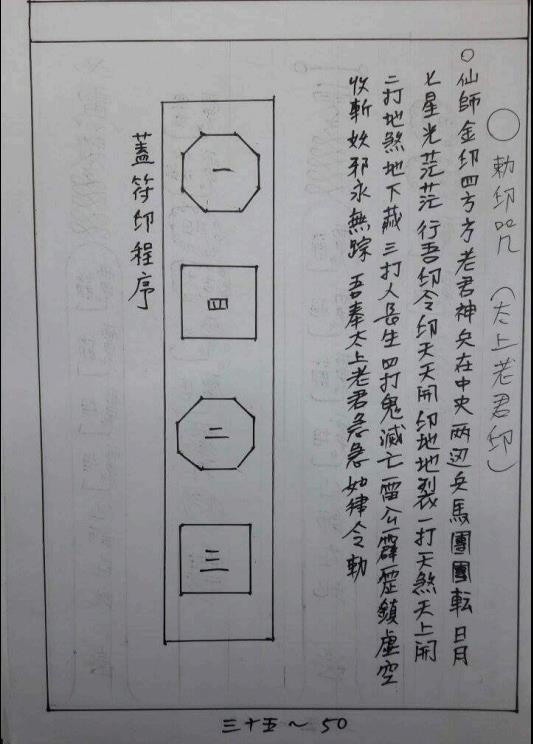 ○ 勅印咒 (太上老君印)
○仙師金印四方方老君神兵在中央两边兵馬團團転日月
七星光茫茫行吾印令印天天開印地地裂一打天煞天上開
二打地煞地下藏三打人長生四打鬼滅亡雷公霹靂鎮虛空
收斬妖邪永無踪 吾奉太上老君急急如律令勅
一
四
二
三
蓋符印程序
三十五~50